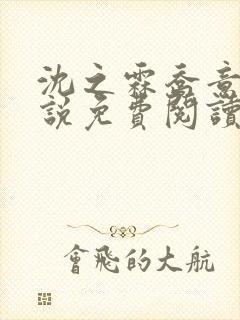 沈之霖喬意
說免費閱讀
會飛的大航